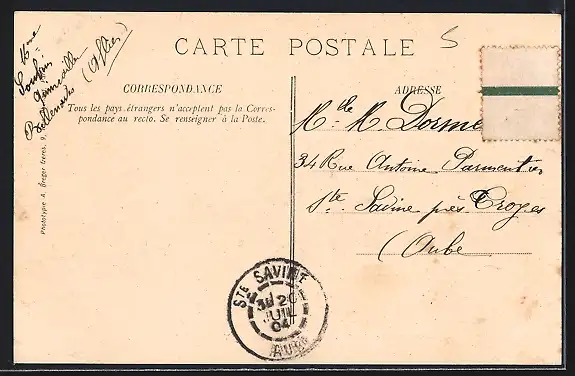 CARTE POSTALE
5
CORRESPONDANCE
Tous les pays étrangers n'acceptent pas la Corres-
pondance au recto. Se renseigner à la Poste.
ADRESSE
Mlle M. Dorme
34 Rue Antoine Parmentier
Ste Savine près Troyes
(Aube
Phototypie A. Breger frères, 9,
STE SAVINE
JUIL
04
AUBE